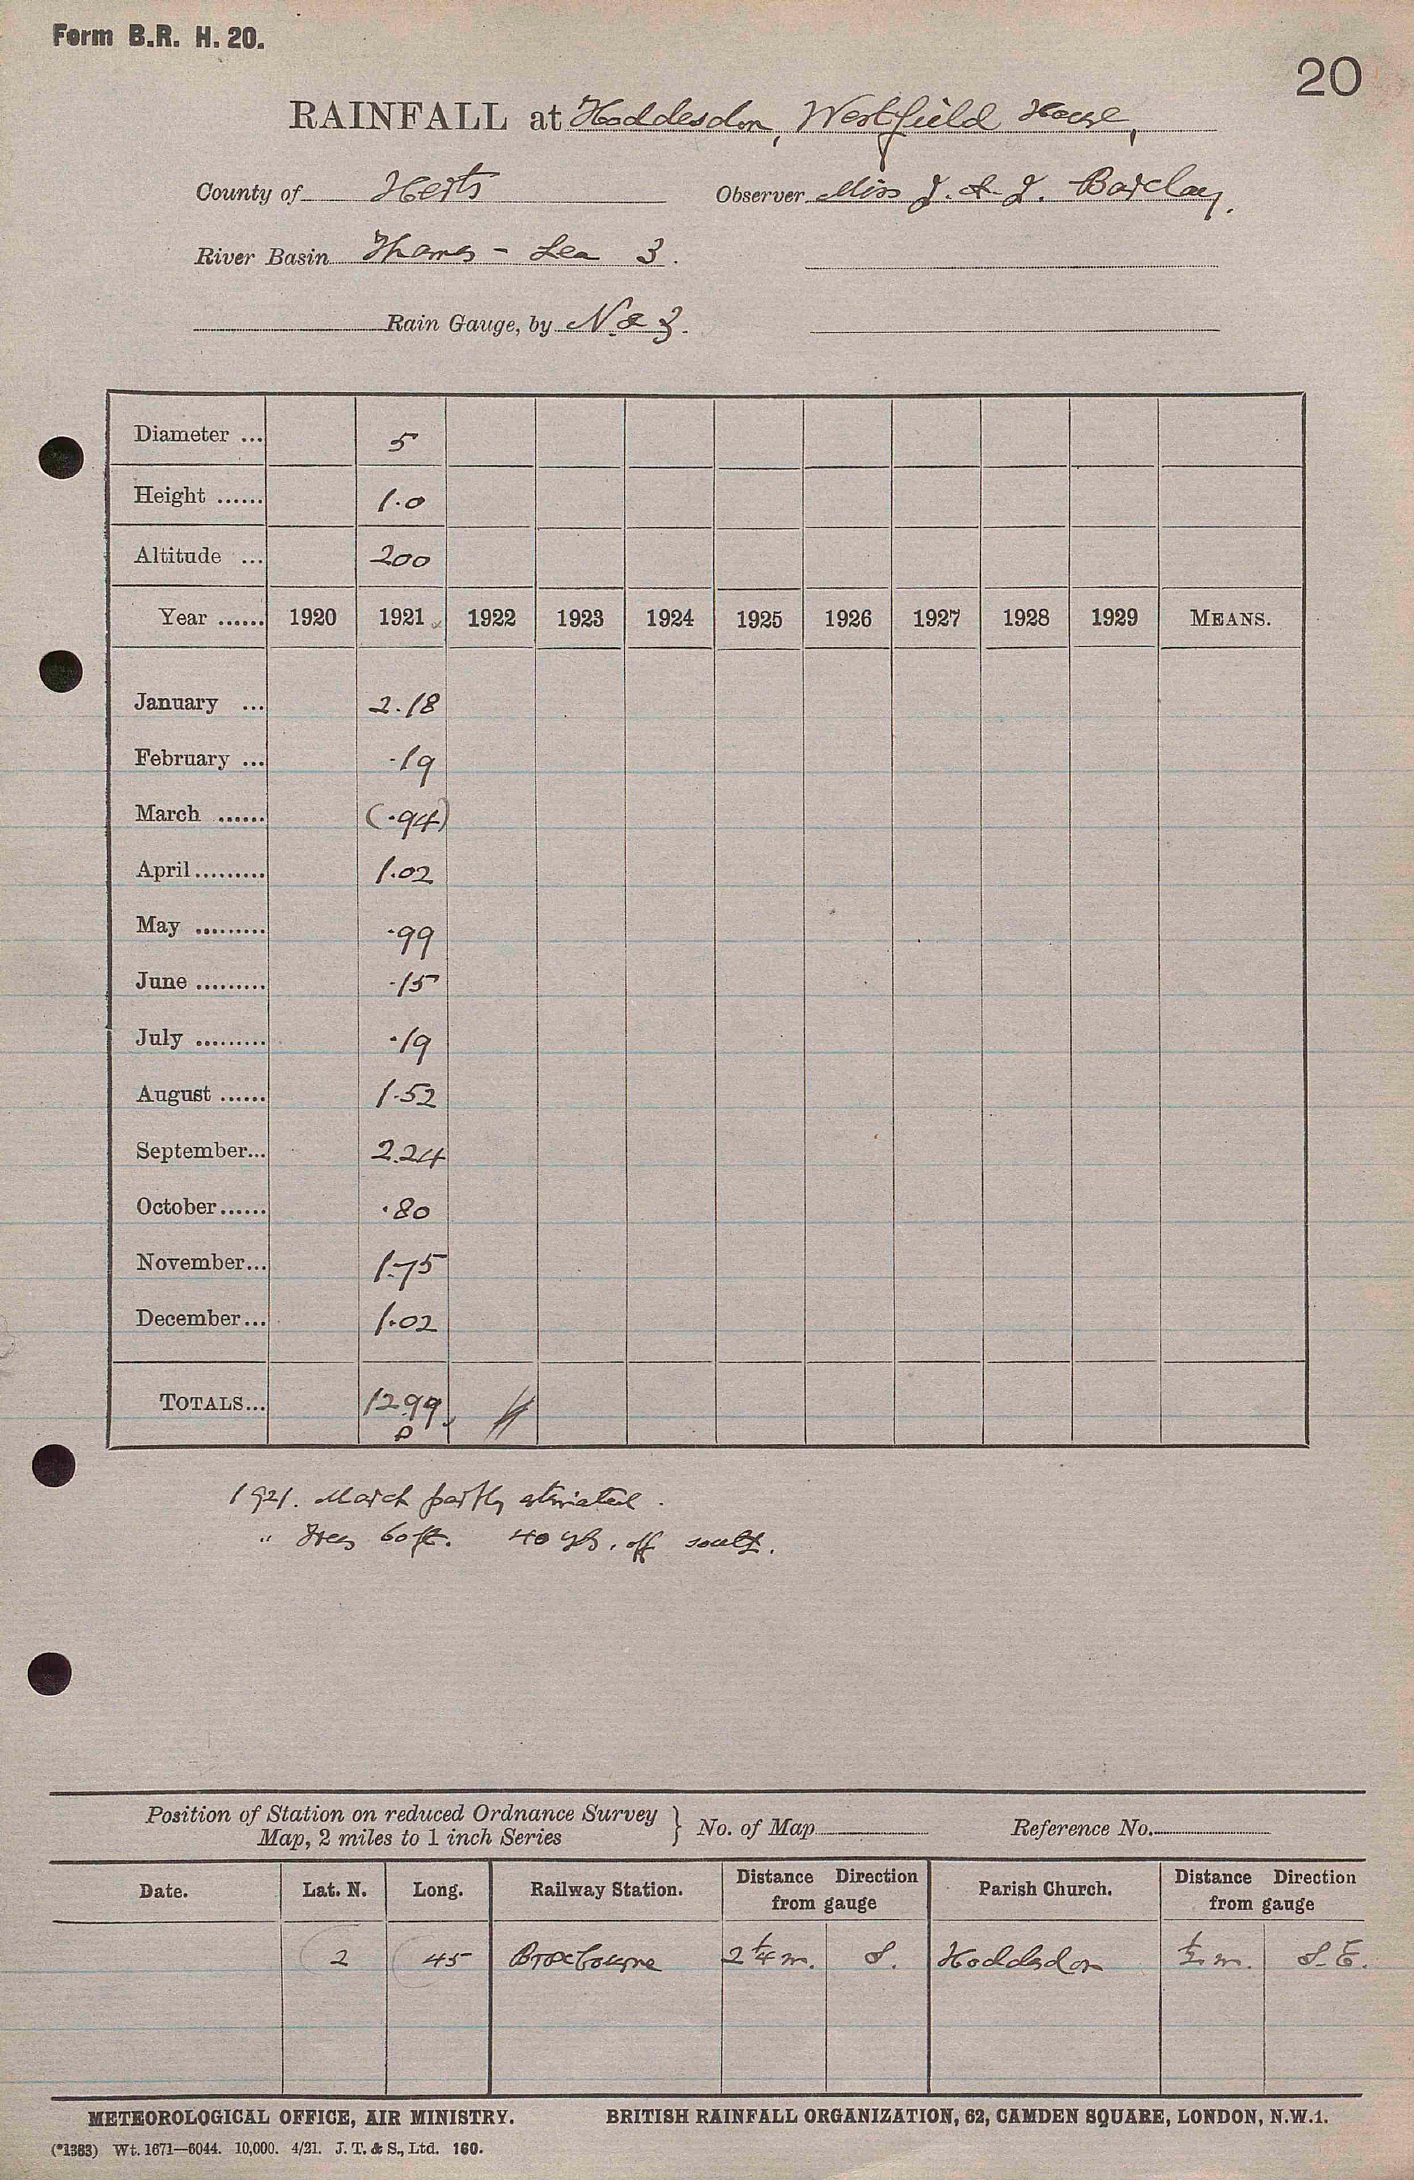 Form B.R. H. 20.
20
RAINFALL at Hoddesdon, Westfield House,
County of Herts Observer Miss J. & J. Barclay.
River Basin Thames - Lea 3.
Rain Gauge, by N & Z.
Diameter ... 5
Height ...... 1.0
Altitude ... 200
Year ...... 1920 1921 1922 1923 1924 1925 1926 1927 1928 1929 MEANS.
January ... 2.18
February ... .19
March ...... (.94)
April ......... 1.02
May ......... .99
June ......... .15
July ......... .19
August ...... 1.52
September... 2.24
October ...... .80
November... 1.75
December... 1.02
TOTALS... 12.99
1921. March partly estimated.
" Trees 60 ft. 40 yds. off south.
Position of Station on reduced Ordnance Survey
Map, 2 miles to 1 inch Series } No. of Map Reference No.
Date. Lat. N. Long. Railway Station. Distance Direction from gauge Parish Church. Distance Direction from gauge
2 45 Broxbourne 2 1/4 m. S. Hoddesdon 1/2 m. S.E.
METEOROLOGICAL OFFICE, AIR MINISTRY. BRITISH RAINFALL ORGANIZATION, 62, CAMDEN SQUARE, LONDON, N.W.1.
(*1383) Wt. 1671—6044. 10,000. 4/21. J. T. & S., Ltd. 160.